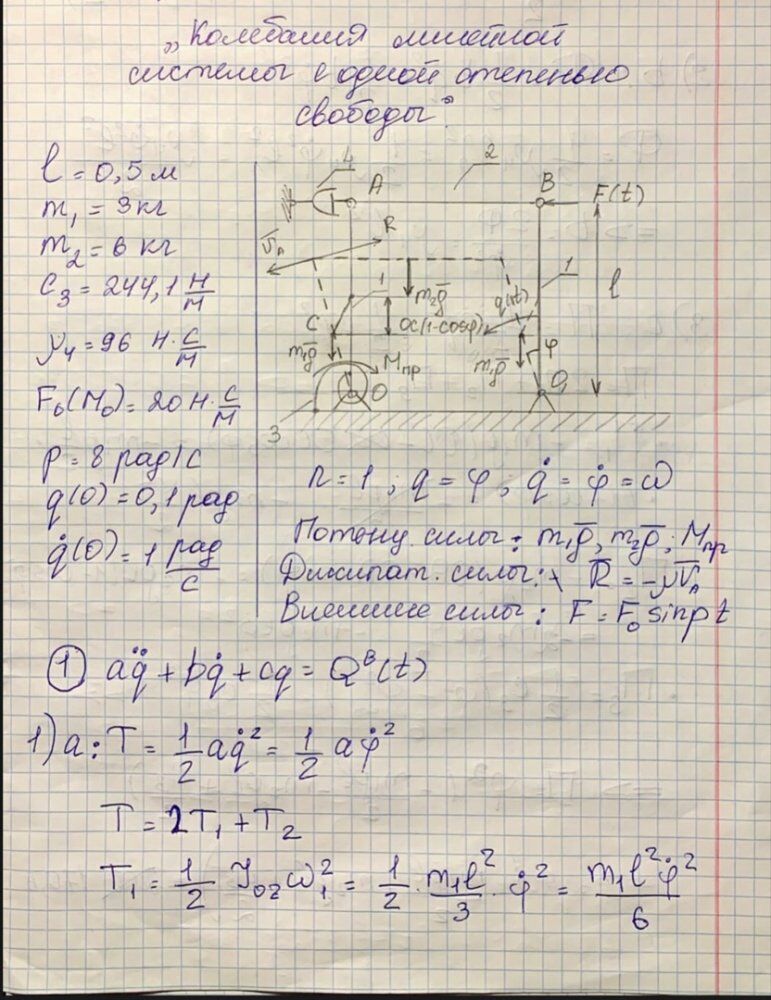 „Колебания линейной
системы с одной степенью
свободы“
l = 0,5 м
m₁ = 3 кг
m₂ = 6 кг
C₃ = 244,1 Н/м
μ₄ = 96 Н·с/м
F₀(M₀) = 20 Н·с/м
p = 8 рад/с
q(0) = 0,1 рад
q̇(0) = 1 рад/с
4
A
2
B
F(t)
V̄ₐ
R
1
m₂ḡ
q(t)
1
l
C
OC(1-cosφ)
m₁ḡ
Mпр
m₁ḡ
φ
O
O₁
3
n = 1 ; q = φ ; q̇ = φ̇ = ω
Потенц. силы: m₁ḡ, m₂ḡ; Mпр
Диссипат. силы: R̄ = -μV̄ₐ
Внешние силы: F = F₀ sinpt
① aq̈ + bq̇ + cq = Qᴮ(t)
1) a: T = 1/2 aq̇² = 1/2 aφ̇²
T = 2T₁ + T₂
T₁ = 1/2 J₀z ω₁² = 1/2 · m₁l²/3 · φ̇² = m₁l²φ̇²/6